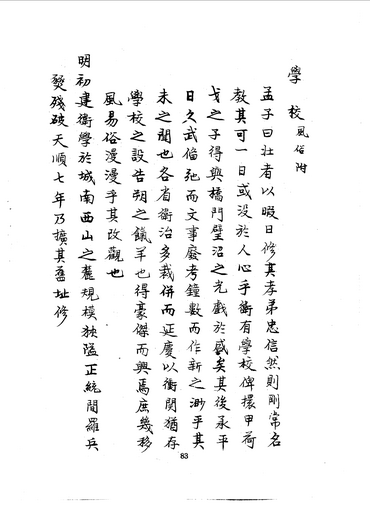 學校風俗附
孟子曰壯者以暇日修其孝弟忠信然則剛常名
教其可一日或没於人心乎衛有學校俾擐甲荷
戈之子得與橋門璧沼之光戲於盛矣其後承平
日久武偹弛而文事廢考鐘數而作新之渺乎其
未之聞也各省衛治多裁併而延慶以衛閑猶存
學校之設告朔之餼羊也得豪傑而興焉庶幾移
風易俗漫漫乎其改觀也
明初建衛學於城南西山之麓規模狹隘正統間羅兵
燹殘破天順七年乃擴其舊址修
83